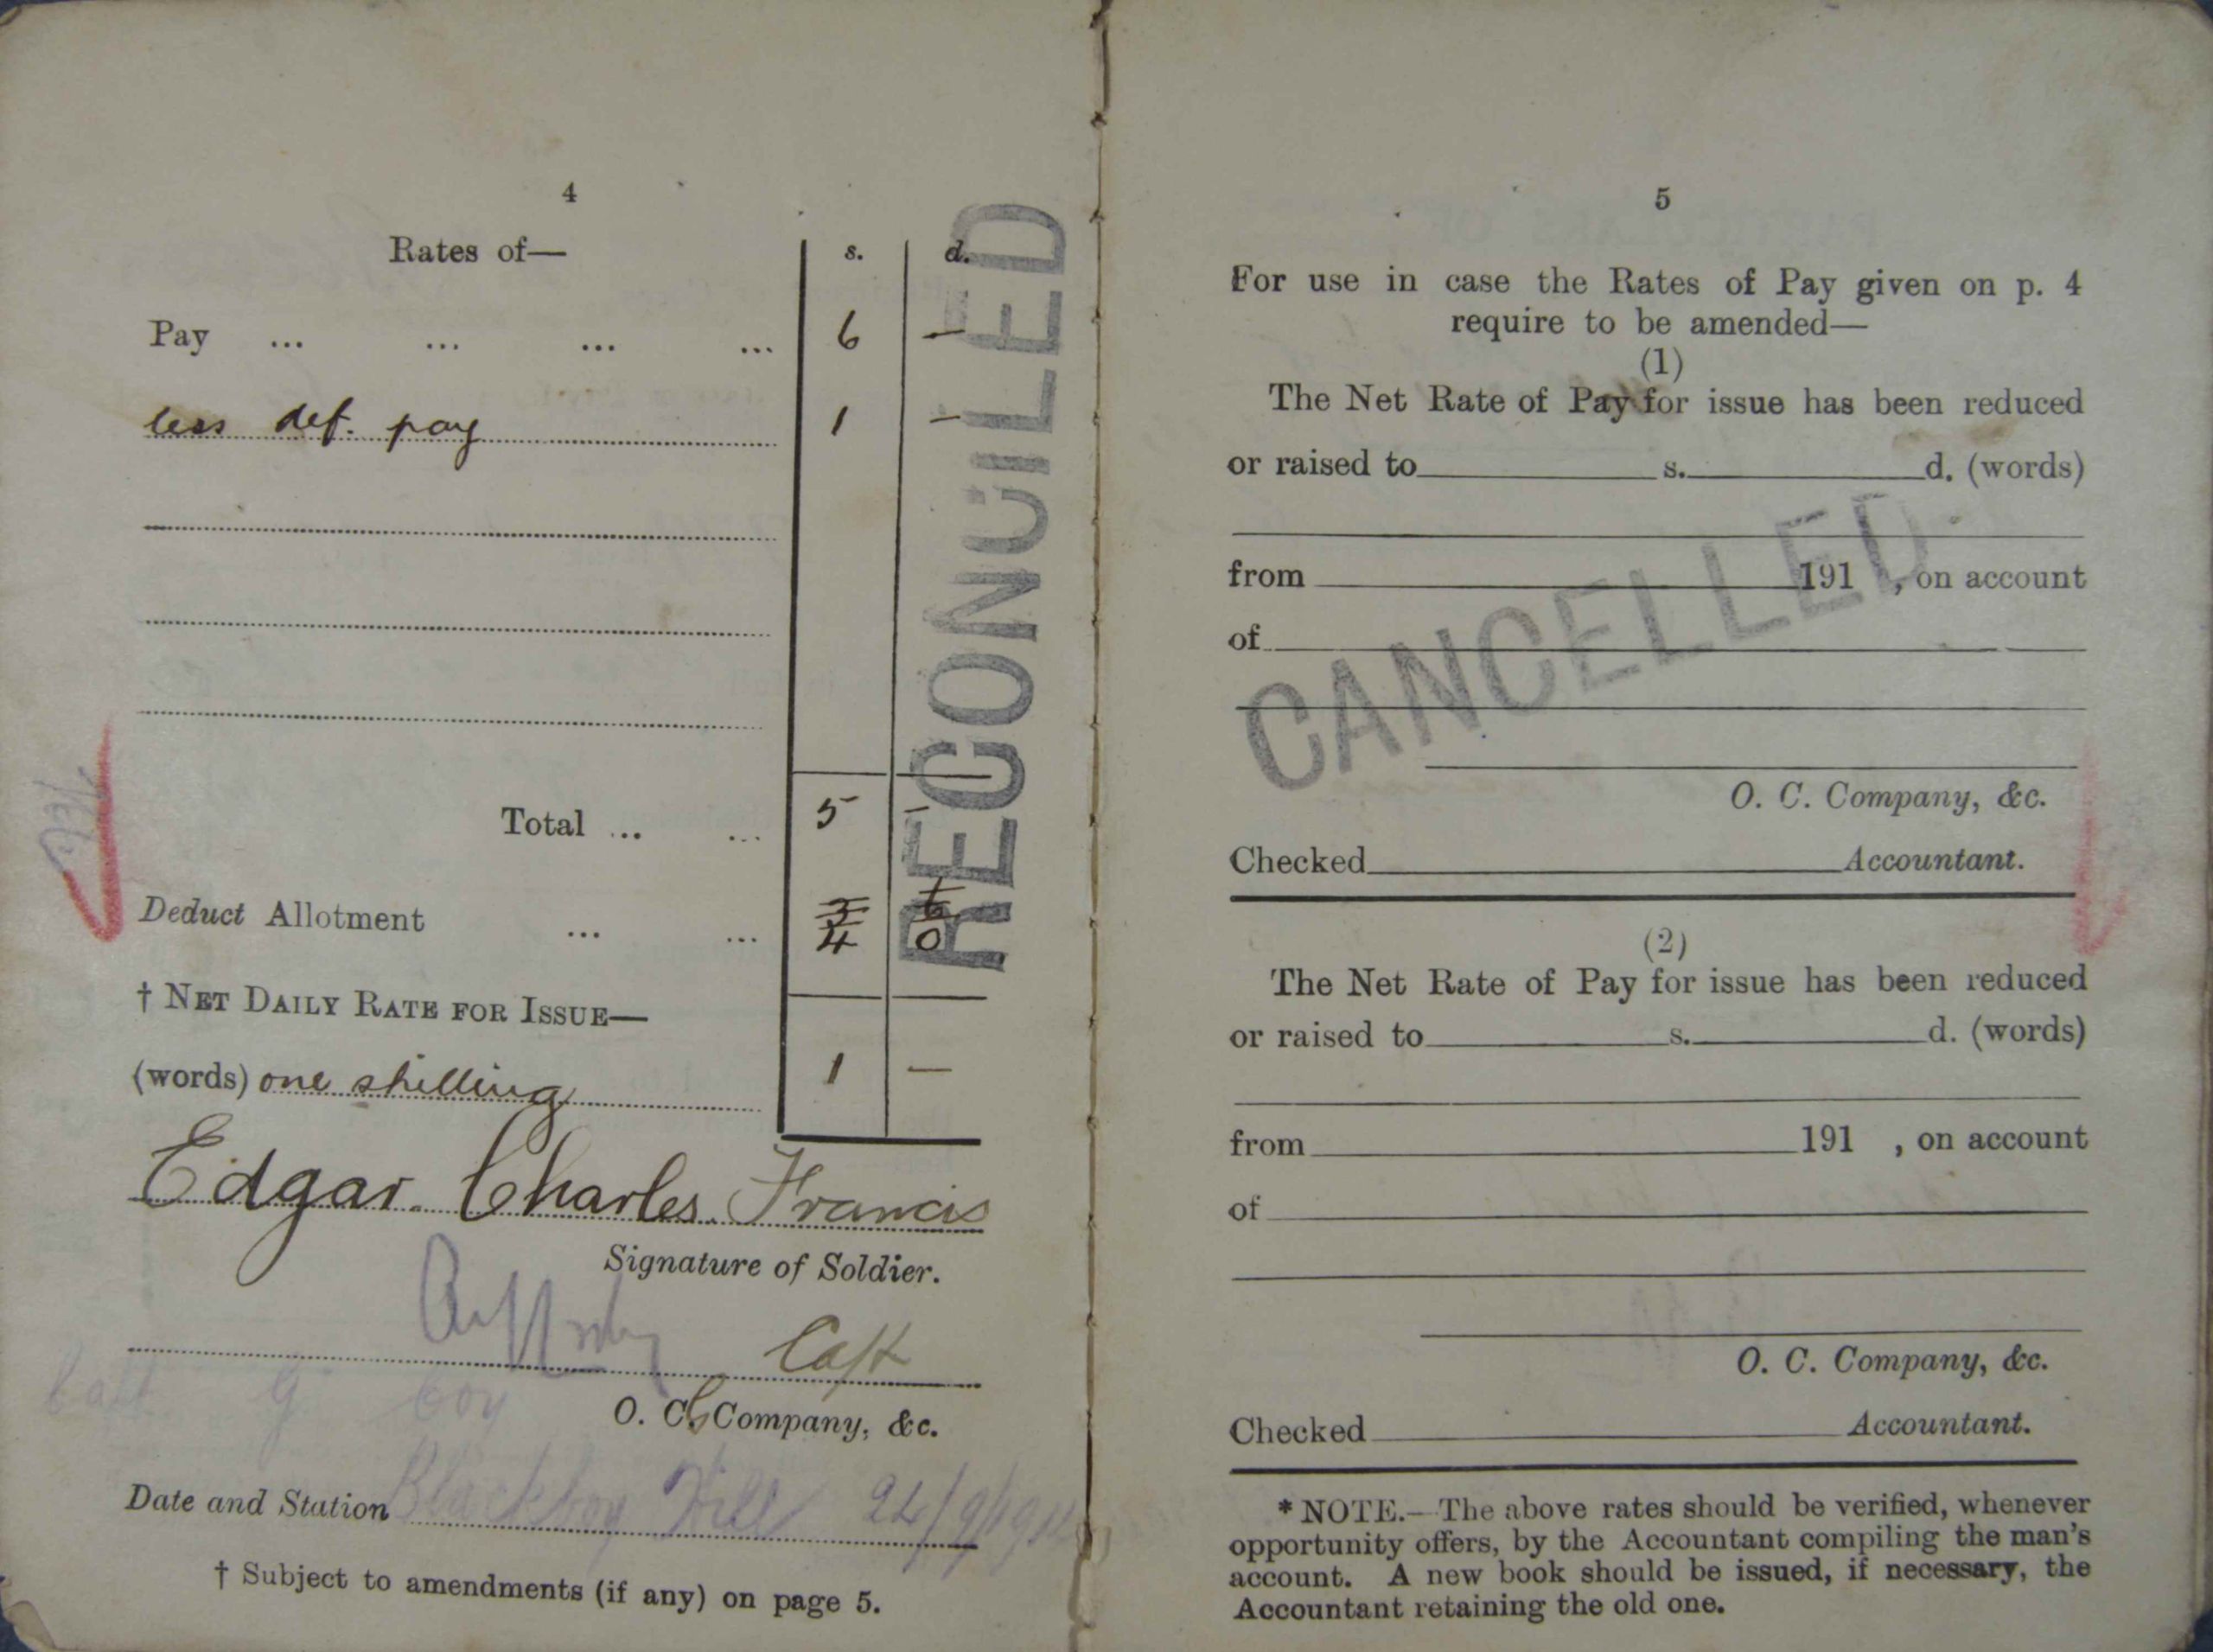 4
Rates of— s. d.
Pay ... ... ... ... 6 —
less def. pay 1 —
Total ... ... 5 —
Deduct Allotment ... ... 4 0
† NET DAILY RATE FOR ISSUE—
(words) one shilling 1 —
Edgar Charles Francis
Signature of Soldier.
Capt
O. C. Company, &c.
G Coy
Date and Station Blackboy Hill 24/9/1914
† Subject to amendments (if any) on page 5.
RECONCILED
5
For use in case the Rates of Pay given on p. 4
require to be amended—
(1)
The Net Rate of Pay for issue has been reduced
or raised to s. d. (words)
from 191 , on account
of
CANCELLED
O. C. Company, &c.
Checked Accountant.
(2)
The Net Rate of Pay for issue has been reduced
or raised to s. d. (words)
from 191 , on account
of
O. C. Company, &c.
Checked Accountant.
* NOTE.—The above rates should be verified, whenever
opportunity offers, by the Accountant compiling the man's
account. A new book should be issued, if necessary, the
Accountant retaining the old one.